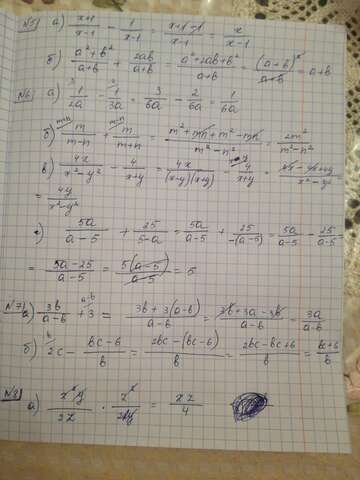 №5) а) x+1/x-1 - 1/x-1 = x+1-1/x-1 = x/x-1
б) a²+b²/a+b + 2ab/a+b = a²+2ab+b²/a+b = (a+b)²/a+b = a+b
№6) а) 1/2a - 1/3a = 3/6a - 2/6a = 1/6a
б) m/m-n + m/m+n = m²+mn+m²-mn/m²-n² = 2m²/m²-n²
в) 4x/x²-y² - 4/x+y = 4x/(x-y)(x+y) - 4/x+y = 4x-4x+4y/x²-y²
= 4y/x²-y²
) 5a/a-5 + 25/5-a = 5a/a-5 + 25/-(a-5) = 5a/a-5 - 25/a-5
= 5a-25/a-5 = 5(a-5)/a-5 = 5
№7) а) 3b/a-b + 3 = 3b+3(a-b)/a-b = 3b+3a-3b/a-b = 3a/a-b
б) 2c - bc-6/b = 2bc-(bc-6)/b = 2bc-bc+6/b = bc+6/b
№8) а) x²y/2z · z²/2xy = xz/4